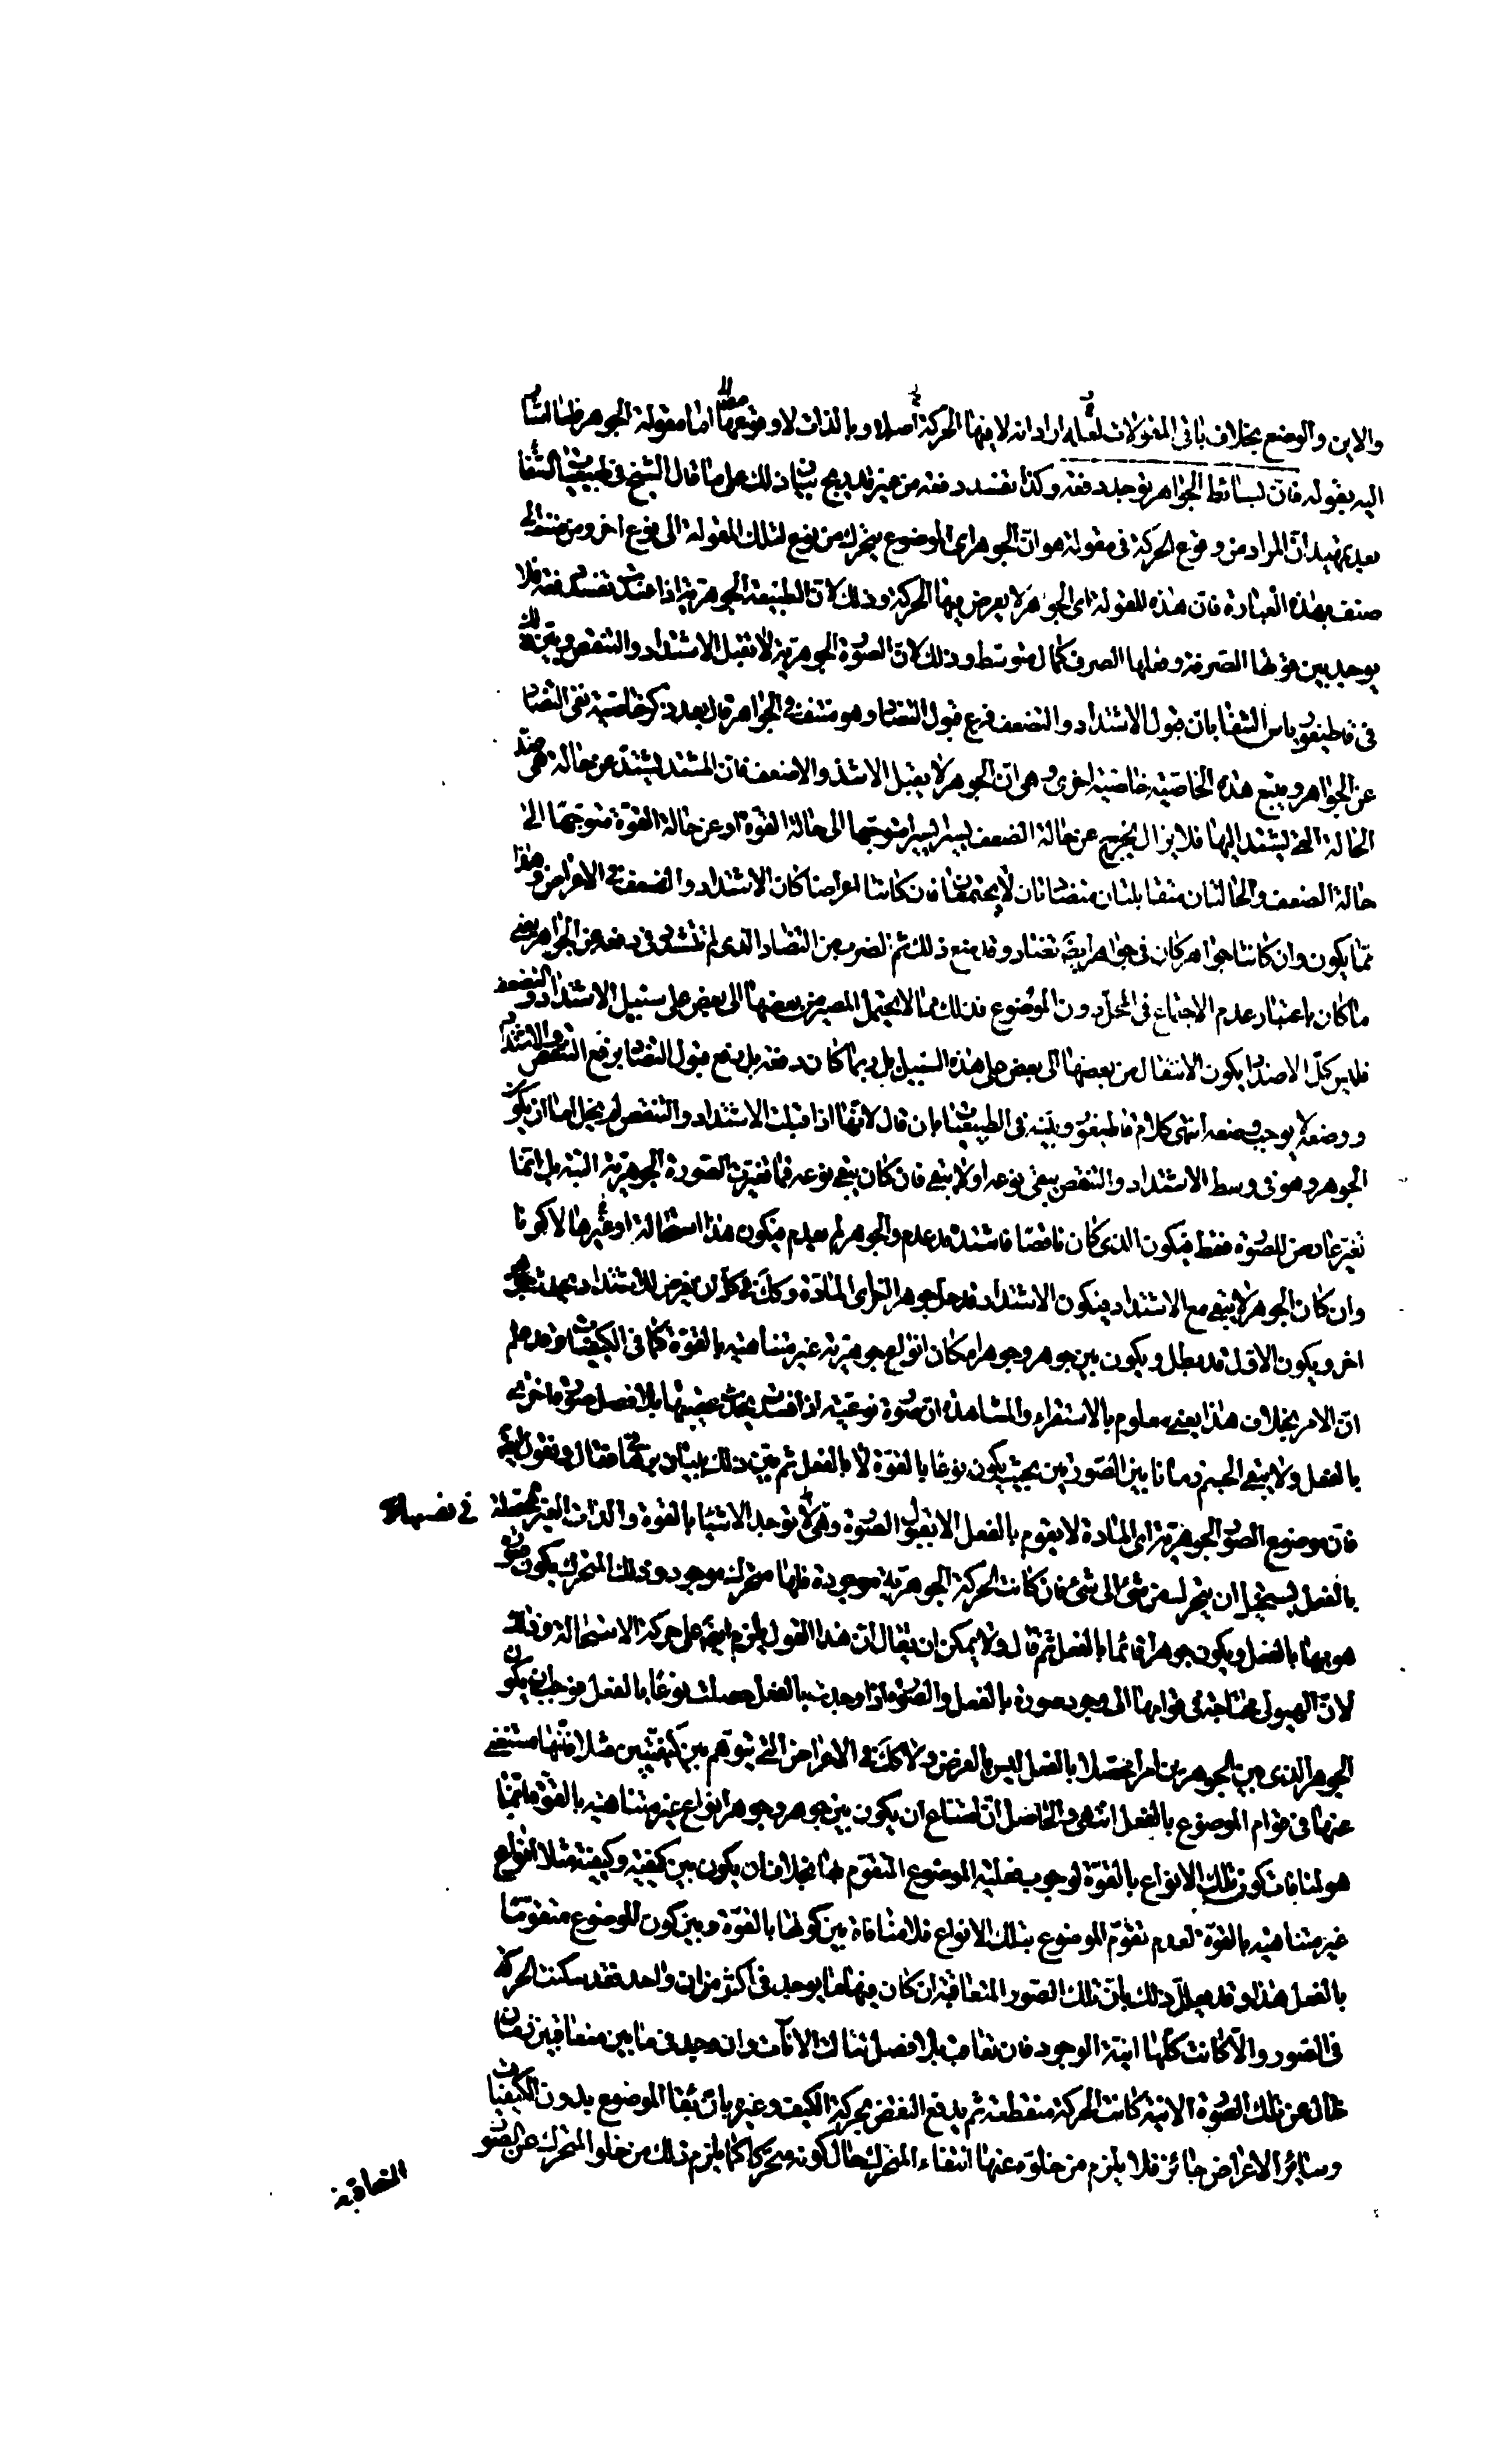 والاين والوضع بخلاف باقى المقولات لعله اراد انه لا يقع فيها الحركة اصلا وبالذات لا وقوعها اما مقولة الجوهر فلما اشار
اليه بقوله فان بسائط الجواهر توجد دفعة وكذا تفسد دفعة من غير تدريج بيان ذلك على ما قال الشيخ فى طبيعيات الشفا
بعد تمهيد ان المراد من وقوع الحركة فى مقولة هو ان الجوهر اى الموضوع يتحرك من نوع لتلك المقولة الى نوع اخر ومن صنف الى
صنف بهذه العبارة فان هذه المقولة اى الجوهر لا يعرض فيها الحركة وذلك لان الطبيعة الجوهرية اذا فسدت تفسد دفعة فلا
يوجد بين قوتها الصرفة وفعلها الصرف كمال متوسط وذلك لان الصورة الجوهرية لا تقبل الاشتداد والتنقص وبين ذلك
فى قاطيغورياس الشفا بان قبول الاشتداد والتضعف فرع قبول التضاد وهو منتف فى الجواهر قال بعد ذكر خاصية نفى التضاد
عن الجواهر ويتبع هذه الخاصية خاصية اخرى وهى ان الجوهر لا يقبل الاشد والاضعف فان المشتد يشتد عن حالة هى ضد
الحالة التى يشتد اليها فلا يزال يخرج عن حالة الضعف يسيرا يسيرا متوجها الى حالة القوة او عن حالة القوة متوجها الى
حالة الضعف والحالتان متقابلتان متضادتان لا يجتمعان فان كانتا اعراضا كان الاشتداد والضعف فى الاعراض وهذا
مما يكون وان كانتا جواهر كان فى جواهر ايضا تضاد وقد منع ذلك ثم الضرب من التضاد الذى لم نتشدد فى دفعه عن الجواهر يعنى
ما كان باعتبار عدم الاجتماع فى المحل دون الموضوع فذلك مما لا يحتمل المصير من بعضها الى بعض على سبيل الاشتداد والتضعف
فليس كل الاضداد يكون الانتقال من بعضها الى بعض على هذه السبيل بل ربما كان دفعة بل رفع قبول التضاد يرفع التنقص والاشتداد
ووضعه لا يوجب وضعه انتهى كلام قاطيغورياس وبينه فى الطبيعيات بان قال لانها اذا قبلت الاشتداد والتنقص لم يخل اما ان يكون
الجوهر وهو فى وسط الاشتداد والتنقص يبقى نوعه او لا يبقى فان كان يبقى نوعه فما تغيرت الصورة الجوهرية البتة بل انما
تغير عارض للصورة فقط فيكون الذى كان ناقصا فاشتد قد عدم والجوهر لم يعدم فيكون هذا استحالة او غيرها لا كونا
وان كان الجوهر لا يبقى مع الاشتداد فيكون الاشتداد قد جلب جوهرا اخر اى المادة وكذلك فى كل ان يفرض للاشتداد يحدث جوهر
اخر ويكون الاول قد بطل ويكون بين جوهر وجوهر امكان انواع جوهرية غير متناهية بالقوة كما فى الكيفيات وقد علم
ان الامر بخلاف هذا يعنى معلوم بالاستقراء والمشاهدة ان صورة نوعية اذا فسدت يحدث عقيبها بلا فصل صورة اخرى
بالفعل ولا يبقى الجسم زمانا بين الصورتين بحيث يكون نوعا بالقوة لا بالفعل ثم بين ذلك ببيان برهانى فقال ونقول ايضا
فان موضوع الصور الجوهرية اى المادة لا يقوم بالفعل الا بقبول الصورة وهى لا توجد الا شيئا بالقوة والذات الغير المحصلة فى نفسها
بالفعل يستحيل ان يتحرك من شئ الى شئ فان كانت الحركة الجوهرية موجودة فلها متحرك موجود وذلك المتحرك يكون صورة
هو بها بالفعل ويكون جوهرا قائما بالفعل ثم قال ولا يمكن ان يقال ان هذا القول يلزم ايضا على حركة الاستحالة وذلك
لان الهيولى محتاجة فى قوامها الى وجود صورة بالفعل والصورة اذا وجدت بالفعل حصلت نوعا بالفعل فوجب ان يكون
الجوهر الذى بين الجوهرين امرا محصلا بالفعل ليس بالعرض ولا كذلك فى الاعراض التى يتوهم بين كيفيتين مثلا فانها مستغنى
عنها فى قوام الموضوع بالفعل انتهى والحاصل ان امتناع ان يكون بين جوهر وجوهر انواع غير متناهية بالقوة انما
هو لمنافات كون تلك الانواع بالقوة لوجوب فعلية الموضوع المتقوم بها بخلاف ان يكون بين كيفية وكيفية مثلا انواع
غير متناهية بالقوة لعدم تقوم الموضوع بتلك الانواع فلا منافاة بين كونها بالقوة وبين كون الموضوع متقوما
بالفعل هذا وقد يعلل ذلك بان تلك الصور المتعاقبة ان كان فيها ما يوجد فى اكثر من ان واحد فقد سكنت الحركة
فى الصور والا كانت كلها انية الوجود فان تعاقب بلا فصل تتالت الانآت وان وجد فى ما بين متعاقبين زمان
خال عن تلك الصورة الانية كانت الحركة منقطعة ثم يدفع النقض بحركة الكيف وغيره بان بقا الموضوع بدون الكيفيات
وسائر الاعراض جائز فلا يلزم من خلوه عنها انتفاء المتحرك حال كونه متحركا كما يلزم ذلك من خلو المتحرك عن الصور
المتعاقبة